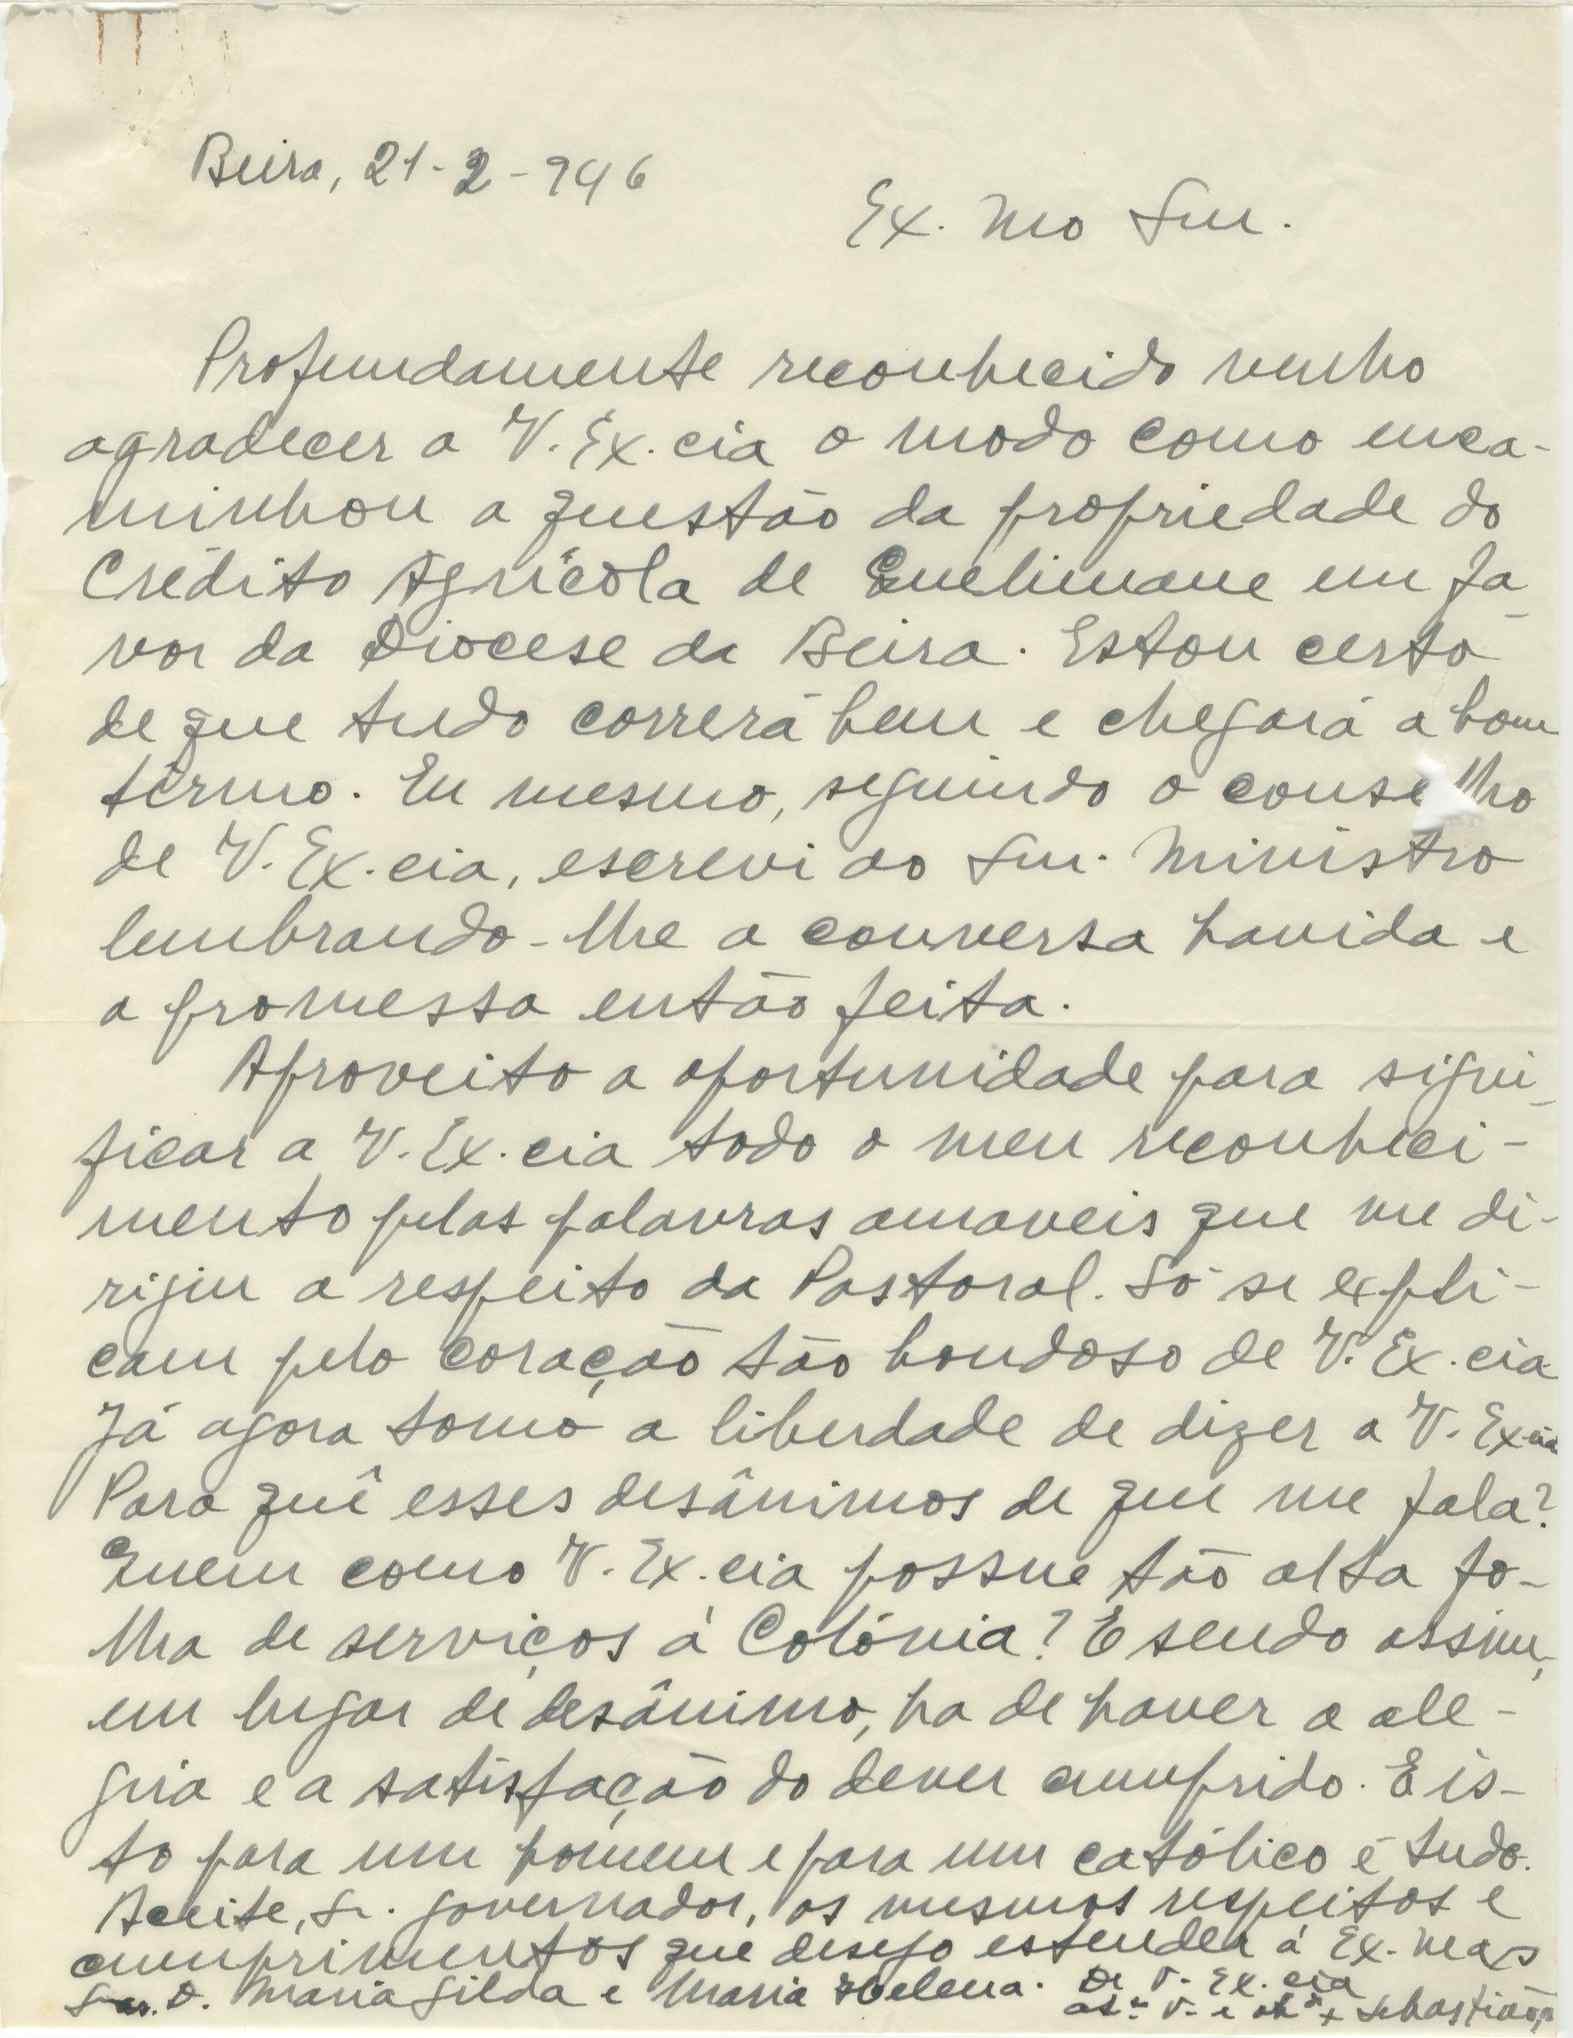 Beira, 21-2-946
Ex. mo Snr.
Profundamente reconhecido venho
agradecer a V. Ex. cia o modo como enca-
minhou a questão da propriedade do
Crédito Agrícola de Quelimane em fa-
vor da Diocese da Beira. Estou certo
de que tudo correrá bem e chegará a bom
têrmo. Eu mesmo, seguindo o conselho
de V. Ex. cia, escrevi ao Snr. Ministro
lembrando-lhe a conversa havida e
a promessa então feita.
Aproveito a oportunidade para signi-
ficar a V. Ex. cia todo o meu reconheci-
mento pelas palavras amaveis que me di-
rigiu a respeito da Pastoral. Só se expli-
cam pelo coração tão bondoso de V. Ex. cia
Já agora tomo a liberdade de dizer a V. Ex. cia
Para quê esses desânimos de que me fala?
Quem como V. Ex. cia possue tão alta fo-
lha de serviços á Colónia? E sendo assim,
em lugar de desânimo, ha de haver a ale-
gria e a satisfação do dever cumprido. E is-
to para um homem e para um católico é tudo.
Aceite, Sr. Governador, os mesmos respeitos e
cumprimentos que desejo estender á Ex. mas
Snr. D. Maria Gilda e Maria Helena. De V. Ex. cia
V. e + Sebastião,